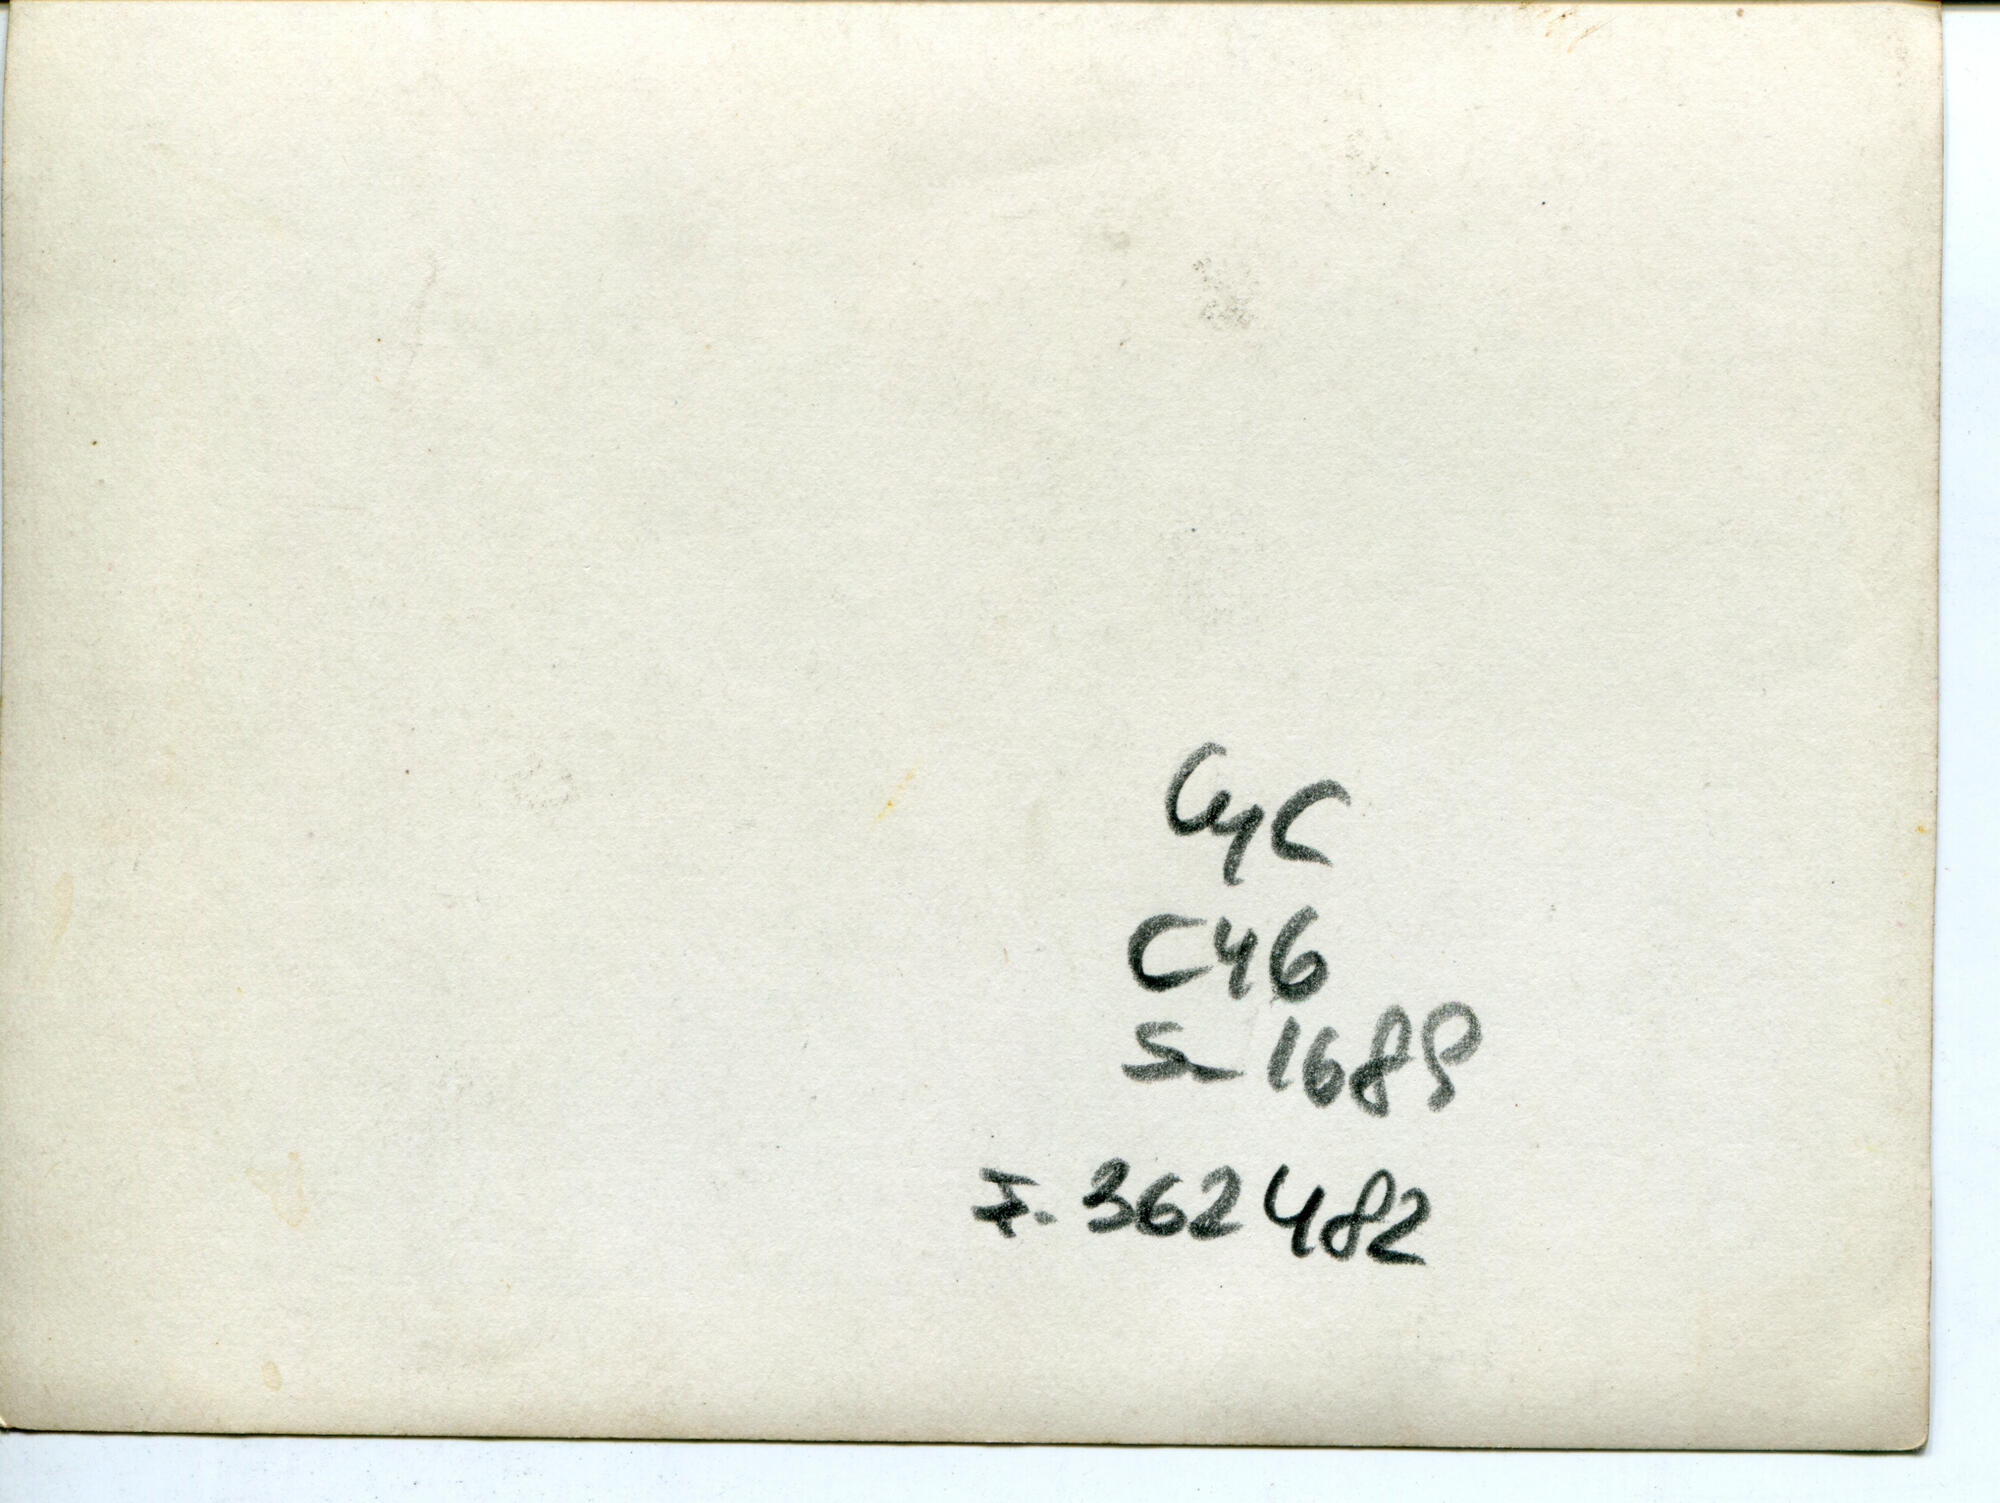 CyC
C46
S-1689
F. 362482